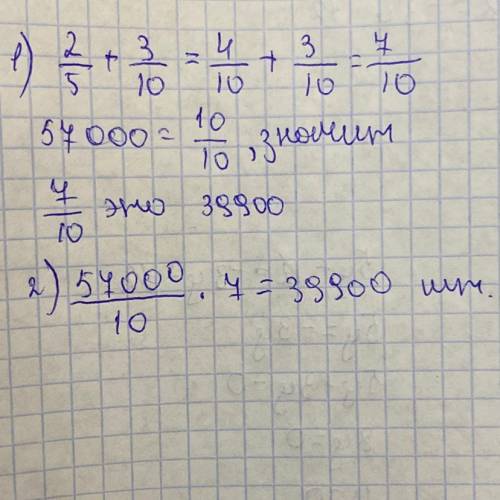 1) 2/5 + 3/10 = 4/10 + 3/10 = 7/10
57000 = 10/10, значит
7/10 это 39900
2) 57000/10 · 7 = 39900 шт.